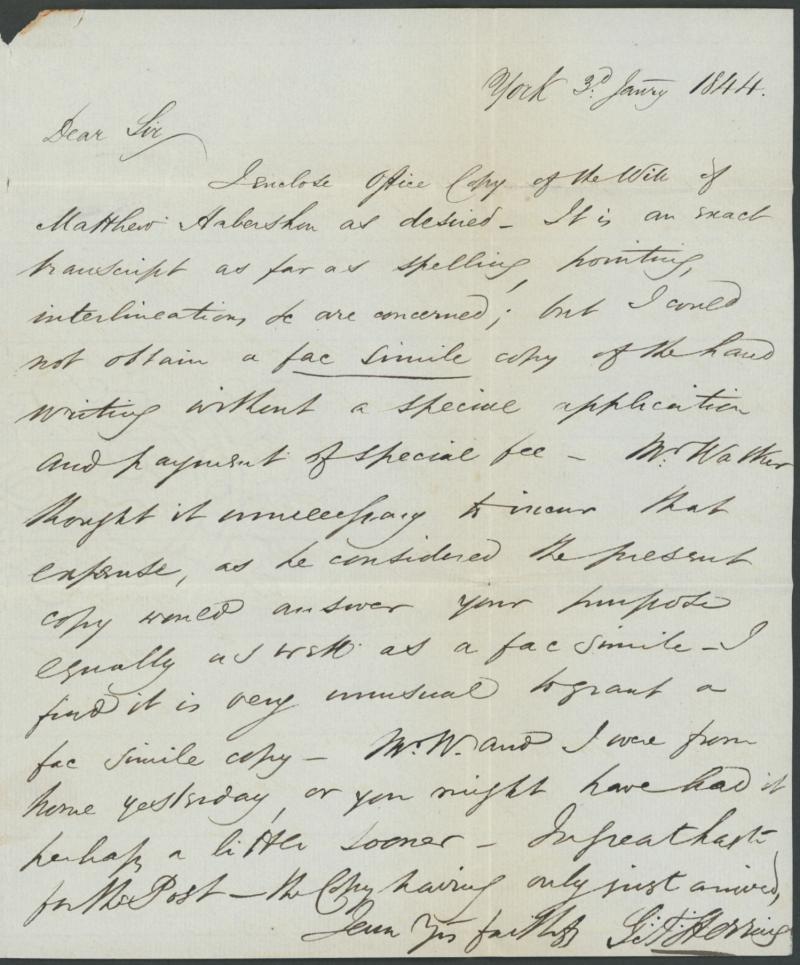 York 3.d Janry 1844.
Dear Sir
I enclose Office Copy of the Will of
Matthew Habershon as desired – It is an exact
transcript as far as spelling, pointing,
interlineations &c are concerned; but I could
not obtain a fac simile copy of the hand
writing without a special application
and payment of special fee – Mr. Walker
thought it unnecessary to incur that
expense, as he considered the present
copy would answer your purpose
equally as well as a fac simile – I
find it is very unusual to grant a
fac simile copy – Mr. W. and I were from
home yesterday, or you might have had it
perhaps a little sooner – In great haste
for the Post – the Copy having only just arrived,
I am Yrs faithfy Herring